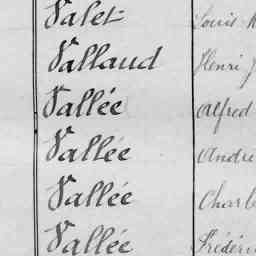 Valet Louis
Vallaud Henri J
Vallée Alfred
Vallée André
Vallée Charl
Vallée Frédéri